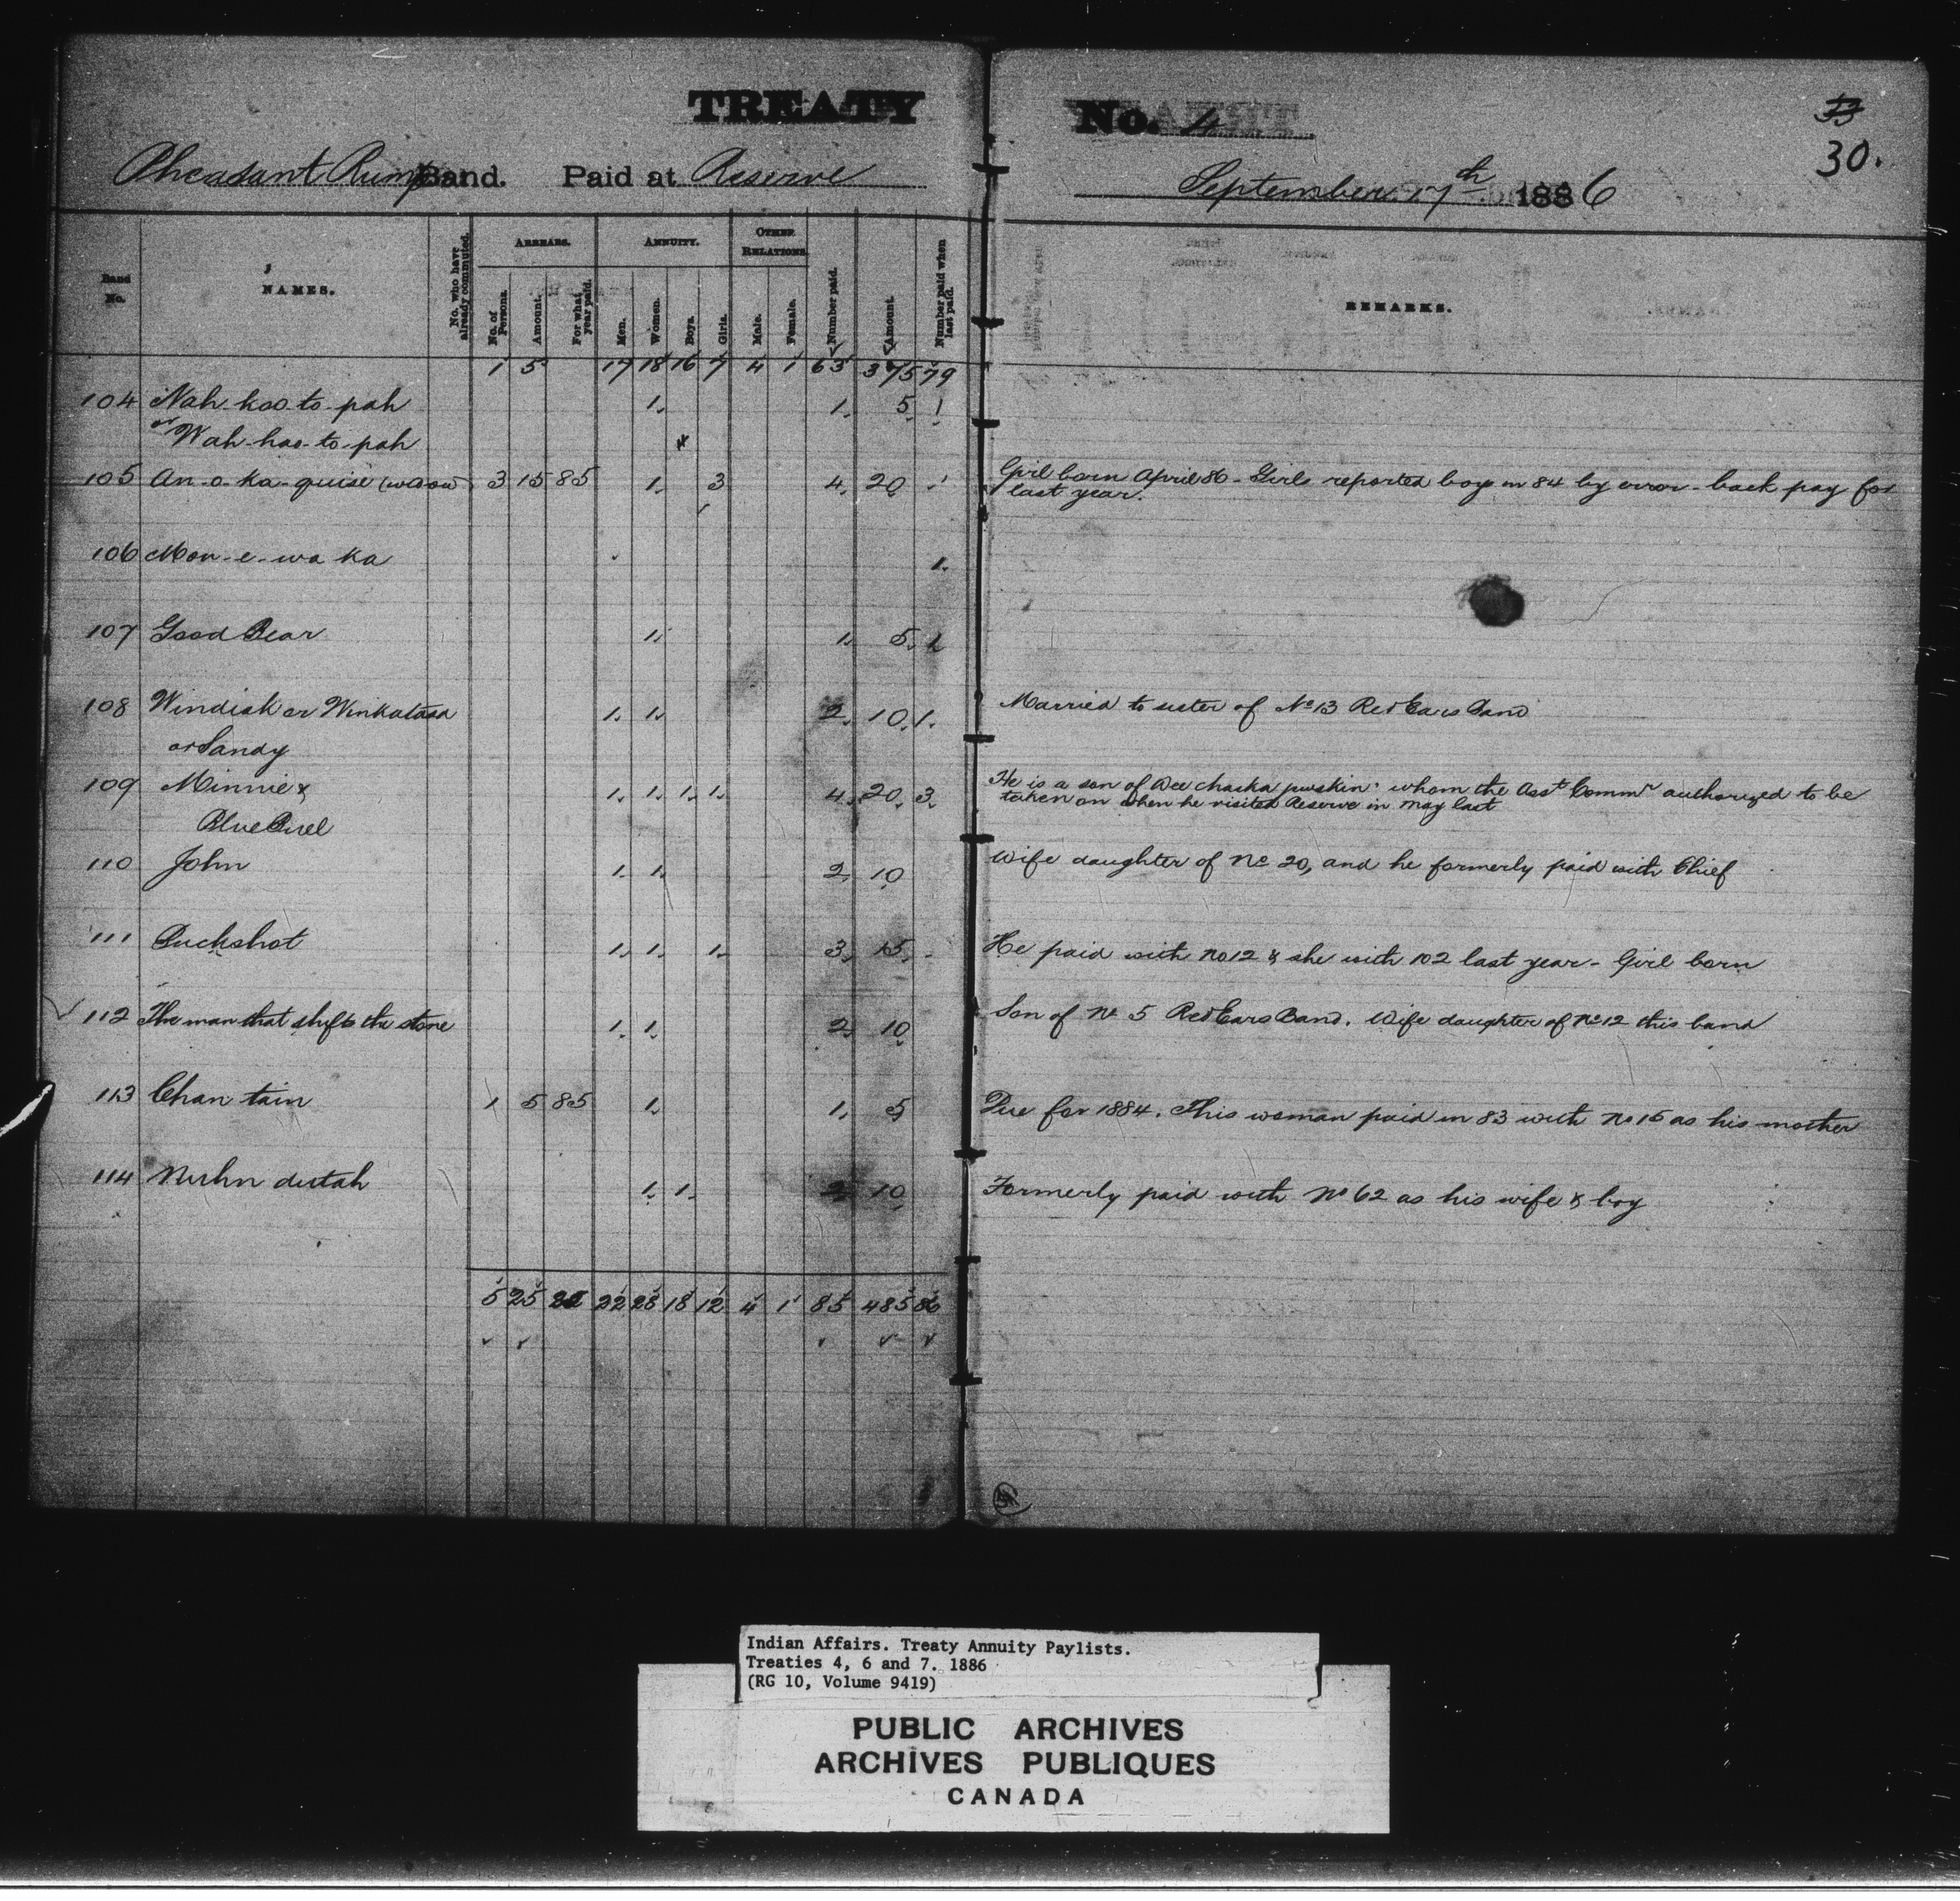 TREATY No. 4
33
30.
Pheasant Rump Band. Paid at Reserve September 17th 1886
Band No. NAMES. No. who have already commuted. ARREARS. No. of Persons. Amount. For what year paid. ANNUITY. Men. Women. Boys. Girls. OTHER RELATIONS Male. Female. Number paid. Amount. Number paid when last paid. REMARKS.
1 5 17 18 16 7 4 1 63 375 79
104 Nah-koo-to-pah 1. 1. 5. 1
or Wah-hoo-to-pah
105 An-o-ka-quise (widow) 3 15 85 1. 3 4. 20 1 Girl born April 86 - Girls reported boys in 84 by error - back pay for
last year.
106 Mon-e-wa ka 1.
107 Good Bear 1. 1. 5. 1
108 Windisk or Winkatasa 1. 1. 2. 10. 1. Married to sister of No 13 Red Ears Band
or Sandy
109 Minnie & 1. 1. 1. 1. 4. 20. 3. He is a son of Wee chaska puskin whom the Asst Commr authorized to be
taken on when he visited Reserve in May last
Blue
110 John 1. 1. 2. 10 Wife daughter of No 20, and he formerly paid with Chief
111 Buckshot 1. 1. 1. 3. 15. He paid with No 12 & she with 102 last year - Girl born
112 The man that shifts the stone 1. 1. 2. 10 Son of No 5 Red Ears Band. Wife daughter of No 12 this band
113 Chan tain 1 5 85 1. 1. 5 Due for 1884. This woman paid in 83 with No 15 as his mother
114 dutah 1. 1. 2. 10 Formerly paid with No 62 as his wife & boy
5 25 22 28 18 12 4 1 85 485 86
Indian Affairs. Treaty Annuity Paylists.
Treaties 4, 6 and 7. 1886
(RG 10, Volume 9419)
PUBLIC ARCHIVES
ARCHIVES PUBLIQUES
CANADA